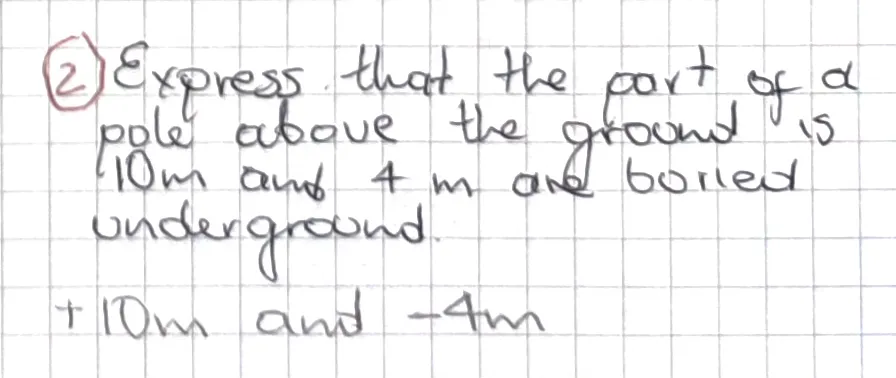 2 Express that the part of a
pole above the ground is
10m and 4 m are boried
underground.
+10m and -4m